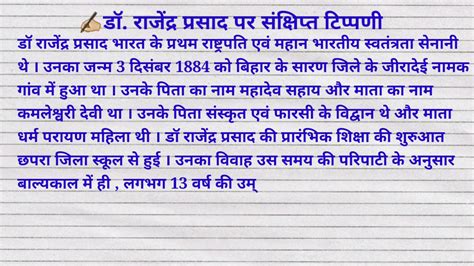 डॉ. राजेंद्र प्रसाद पर संक्षिप्त टिप्पणी
डॉ राजेंद्र प्रसाद भारत के प्रथम राष्ट्रपति एवं महान भारतीय स्वतंत्रता सेनानी
थे । उनका जन्म 3 दिसंबर 1884 को बिहार के सारण जिले के जीरादेई नामक
गांव में हुआ था । उनके पिता का नाम महादेव सहाय और माता का नाम
कमलेश्वरी देवी था । उनके पिता संस्कृत एवं फारसी के विद्वान थे और माता
धर्म परायण महिला थी । डॉ राजेंद्र प्रसाद की प्रारंभिक शिक्षा की शुरुआत
छपरा जिला स्कूल से हुई । उनका विवाह उस समय की परिपाटी के अनुसार
बाल्यकाल में ही , लगभग 13 वर्ष की उम्